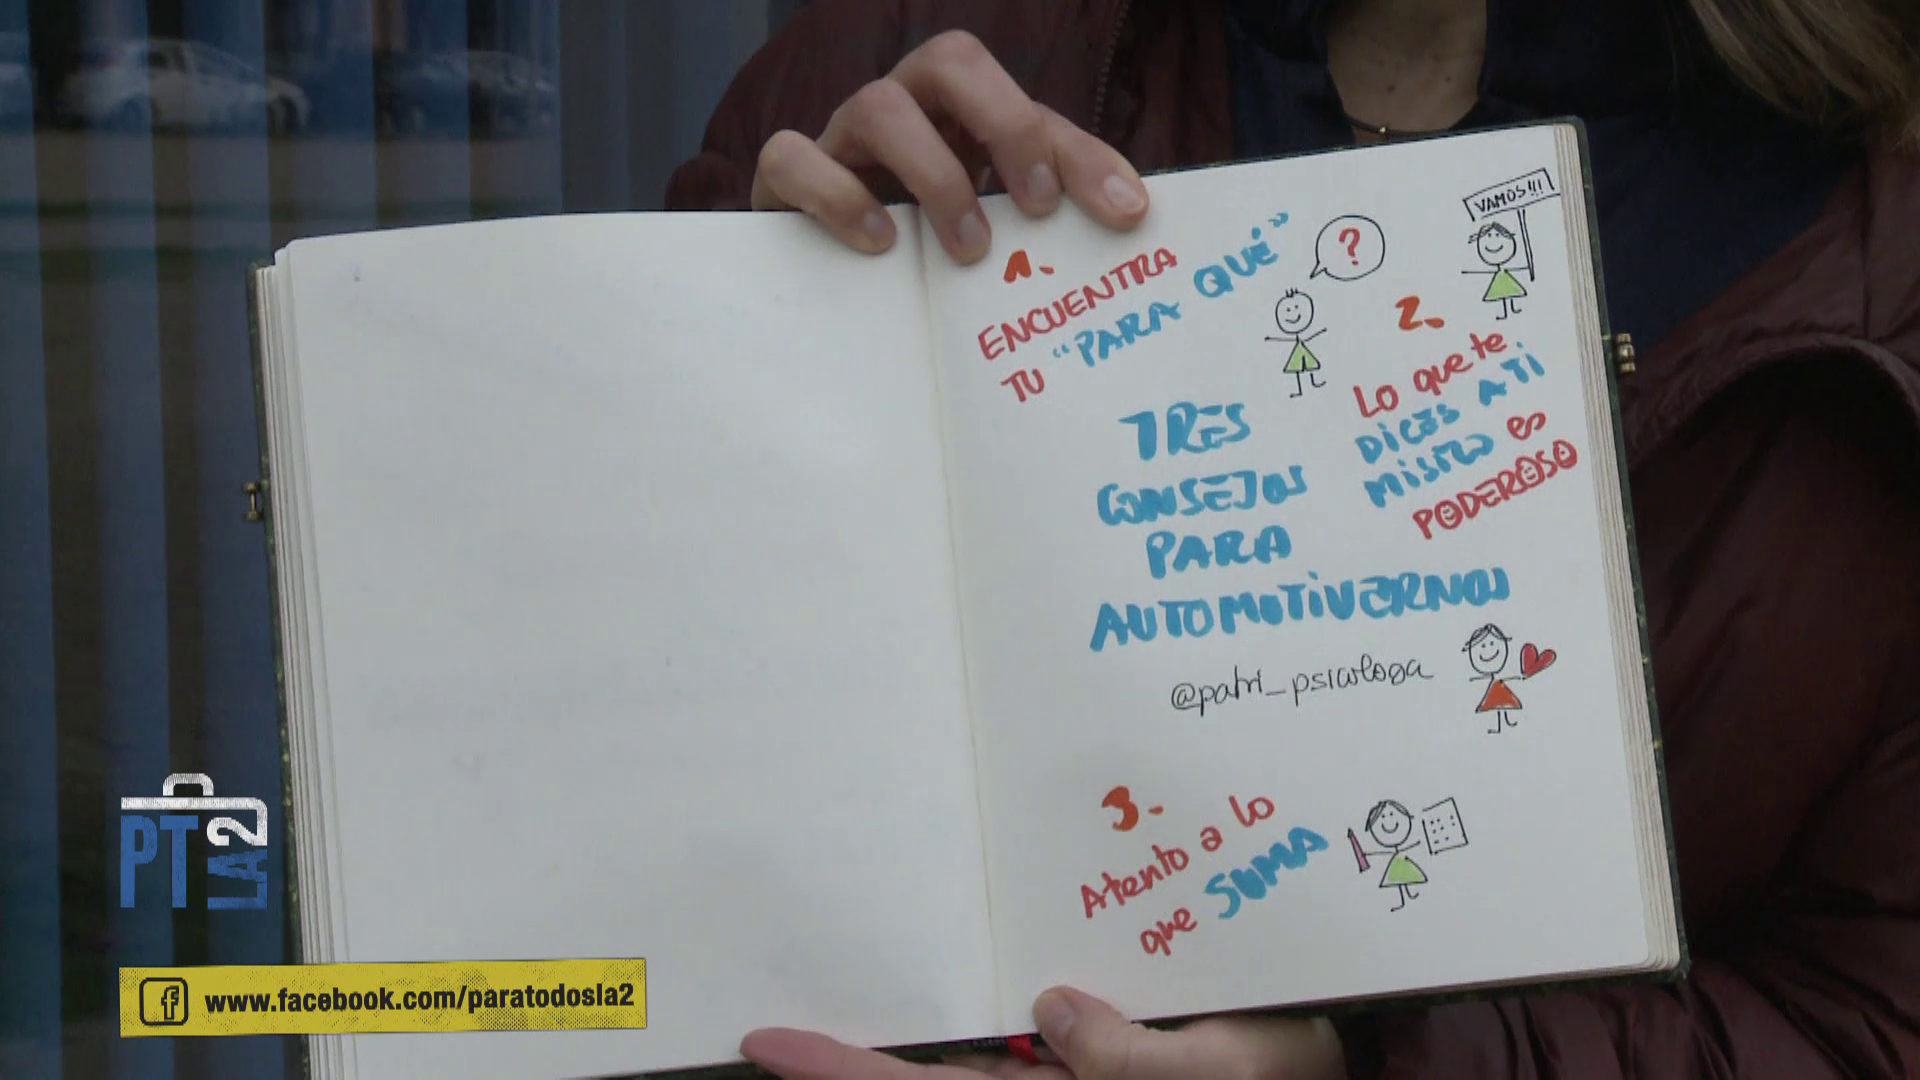 1.
ENCUENTRA
TU "PARA QUÉ"
?
VAMOS!!!
2.
Lo que te
DICES A TI
MISMO es
PODEROSO
TRES
CONSEJOS
PARA
AUTOMOTIVERNOS
@patri_psicologa
3.
Atento a lo
que SUMA
PT
LA2
www.facebook.com/paratodosla2